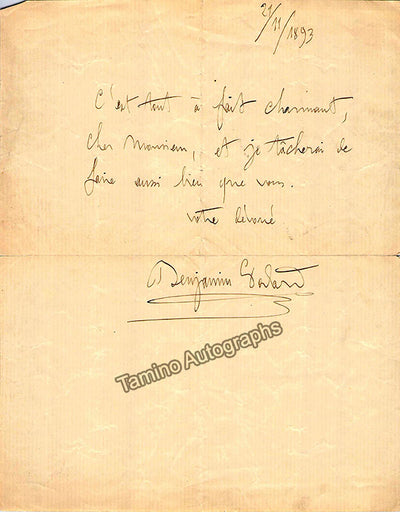 21/11/1893
C'est tout à fait charmant,
cher Monsieur, et je tâcherai de
faire aussi bien que vous.
votre dévoué
Benjamin Godard
Tamino Autographs